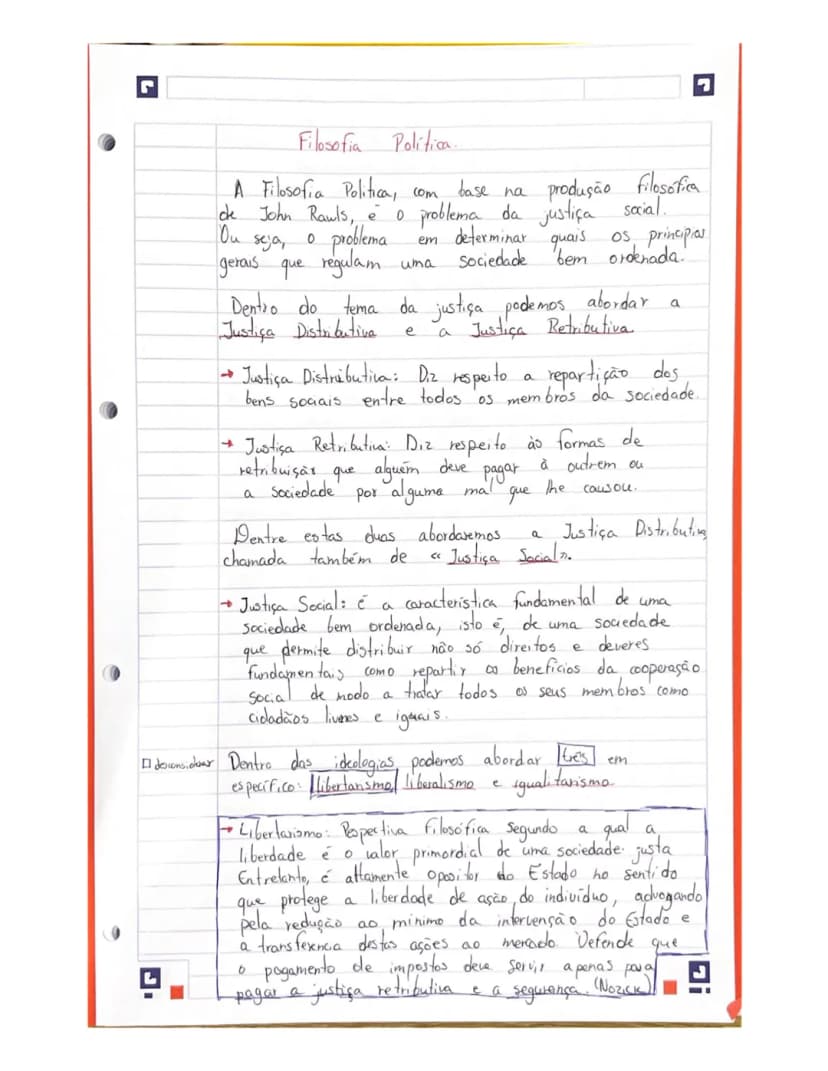 Filosofia Política.
A Filosofia Política, com base na produção filosófica
de John Rawls, é o problema da justiça social.
Ou seja, o problema em determinar quais os princípios
gerais que regulam uma sociedade bem ordenada.
Dentro do tema da justiça podemos abordar a
Justiça Distributiva e a Justiça Retributiva
→ Justiça Distributiva: Diz respeito a repartição dos
bens sociais entre todos os membros da sociedade.
→ Justiça Retributiva: Diz respeito às formas de
retribuição que alguém deve pagar à outrem ou
a sociedade por algume mal que lhe causou.
Dentre estas duas abordaremos a Justiça Distributiva
chamada também de "Justiça Social".
→ Justiça Social: é a característica fundamental de uma
sociedade bem ordenada, isto é, de uma sociedade
que permite distribuir não só direitos e deveres
fundamentais como repartir os benefícios da cooperação
social de modo a tratar todos os seus membros como
cidadãos livres e iguais.
□ desconsiderar Dentro das ideologias podemos abordar três em
específico: libertarismo, liberalismo e igualitarismo.
→ Libertarismo: Perspectiva Filosófica segundo a qual a
liberdade é o valor primordial de uma sociedade justa
Entretanto, é altamente opositor do Estado no sentido
que protege a liberdade de ação do indivíduo, advogando
pela redução ao mínimo da intervenção do Estado e
a transferência destas ações ao mercado. Defende que
o pagamento de impostos deve servir apenas para
pagar a justiça retributiva e a segurança. (Nozick)